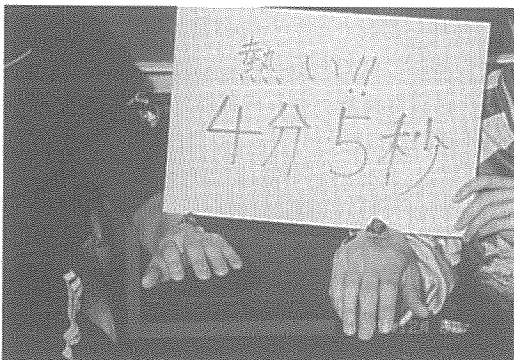 熱い!!
4分5秒